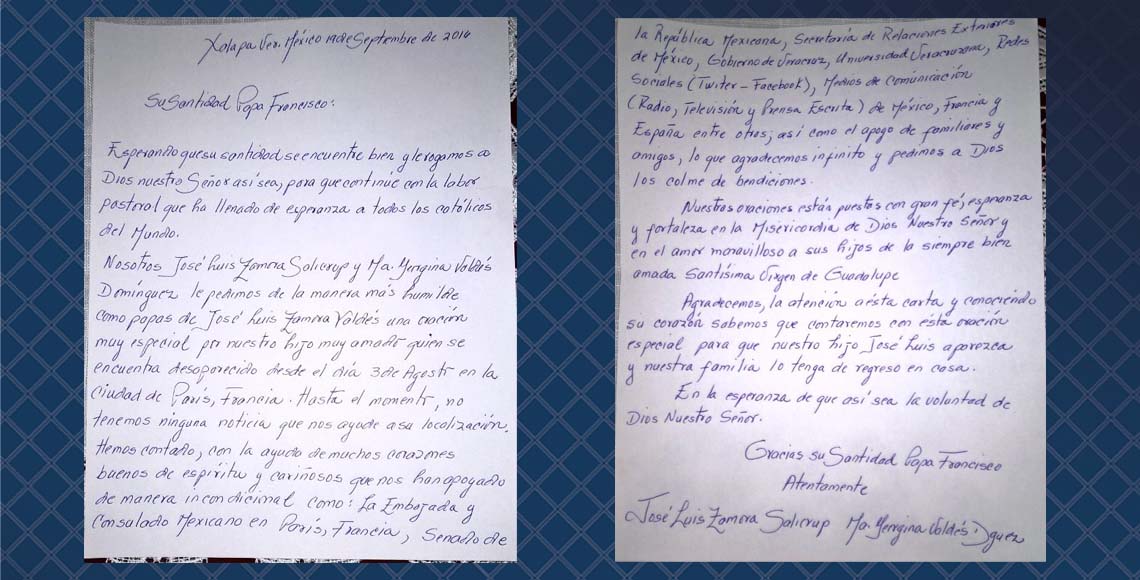 Xalapa Ver. México 19 de Septiembre de 2016
Su Santidad Papa Francisco:
Esperando que su santidad se encuentre bien y le rogamos a
Dios nuestro Señor así sea, para que continúe con la labor
pastoral que ha llenado de esperanza a todos los católicos
del Mundo.
Nosotros José Luis Zamora Salicrup y Ma. Yengina Valdés
Domínguez le pedimos de la manera más humilde
como papas de José Luis Zamora Valdés una oración
muy especial por nuestro hijo muy amado quien se
encuentra desaparecido desde el día 3 de Agosto en la
Ciudad de París, Francia. Hasta el momento, no
tenemos ninguna noticia que nos ayude a su localización.
Hemos contado, con la ayuda de muchos corazones
buenos de espíritu y cariñosos que nos han apoyado
de manera incondicional como: La Embajada y
Consulado Mexicano en París, Francia, Senado de
la República Mexicana, Secretaría de Relaciones Exteriores
de México, Gobierno de Veracruz, Universidad Veracruzana, Redes
Sociales (Twiter - Facebook), Medios de Comunicación
(Radio, Televisión y Prensa Escrita) de México, Francia y
España entre otros; así como el apoyo de familiares y
amigos, lo que agradecemos infinito y pedimos a Dios
los colme de bendiciones.
Nuestras oraciones están puestas con gran fé, esperanza
y fortaleza en la Misericordia de Dios Nuestro Señor y
en el amor maravilloso a sus hijos de la siempre bien
amada Santísima Virgen de Guadalupe
Agradecemos, la atención a ésta carta y conociendo
su corazón sabemos que contaremos con ésta oración
especial para que nuestro hijo José Luis aparezca
y nuestra familia lo tenga de regreso en casa.
En la esperanza de que así sea la voluntad de
Dios Nuestro Señor.
Gracias su Santidad Papa Francisco
Atentamente
José Luis Zamora Salicrup Ma. Yengina Valdés Dguez